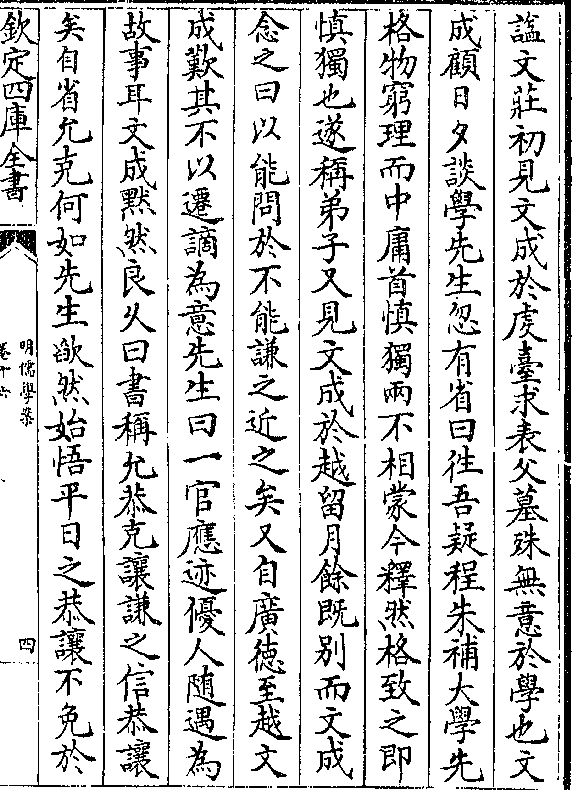 謚文莊初見文成於虔臺求表父墓殊無意於學也文
成顧日夕談學先生忽有省曰徃吾疑程朱補大學先
格物窮理而中庸首慎獨兩不相蒙今釋然格致之即
慎獨也遂稱弟子又見文成於越留月餘既别而文成
念之曰以能問於不能謙之近之矣又自廣徳至越文
成歎其不以遷謫為意先生曰一官應迹優人随遇為
故事耳文成黙然良乆曰書稱允恭克讓謙之信恭讓
矣自省允克何如先生欿然始悟平日之恭讓不免於
欽定四庫全書
明儒學案
卷十六
四